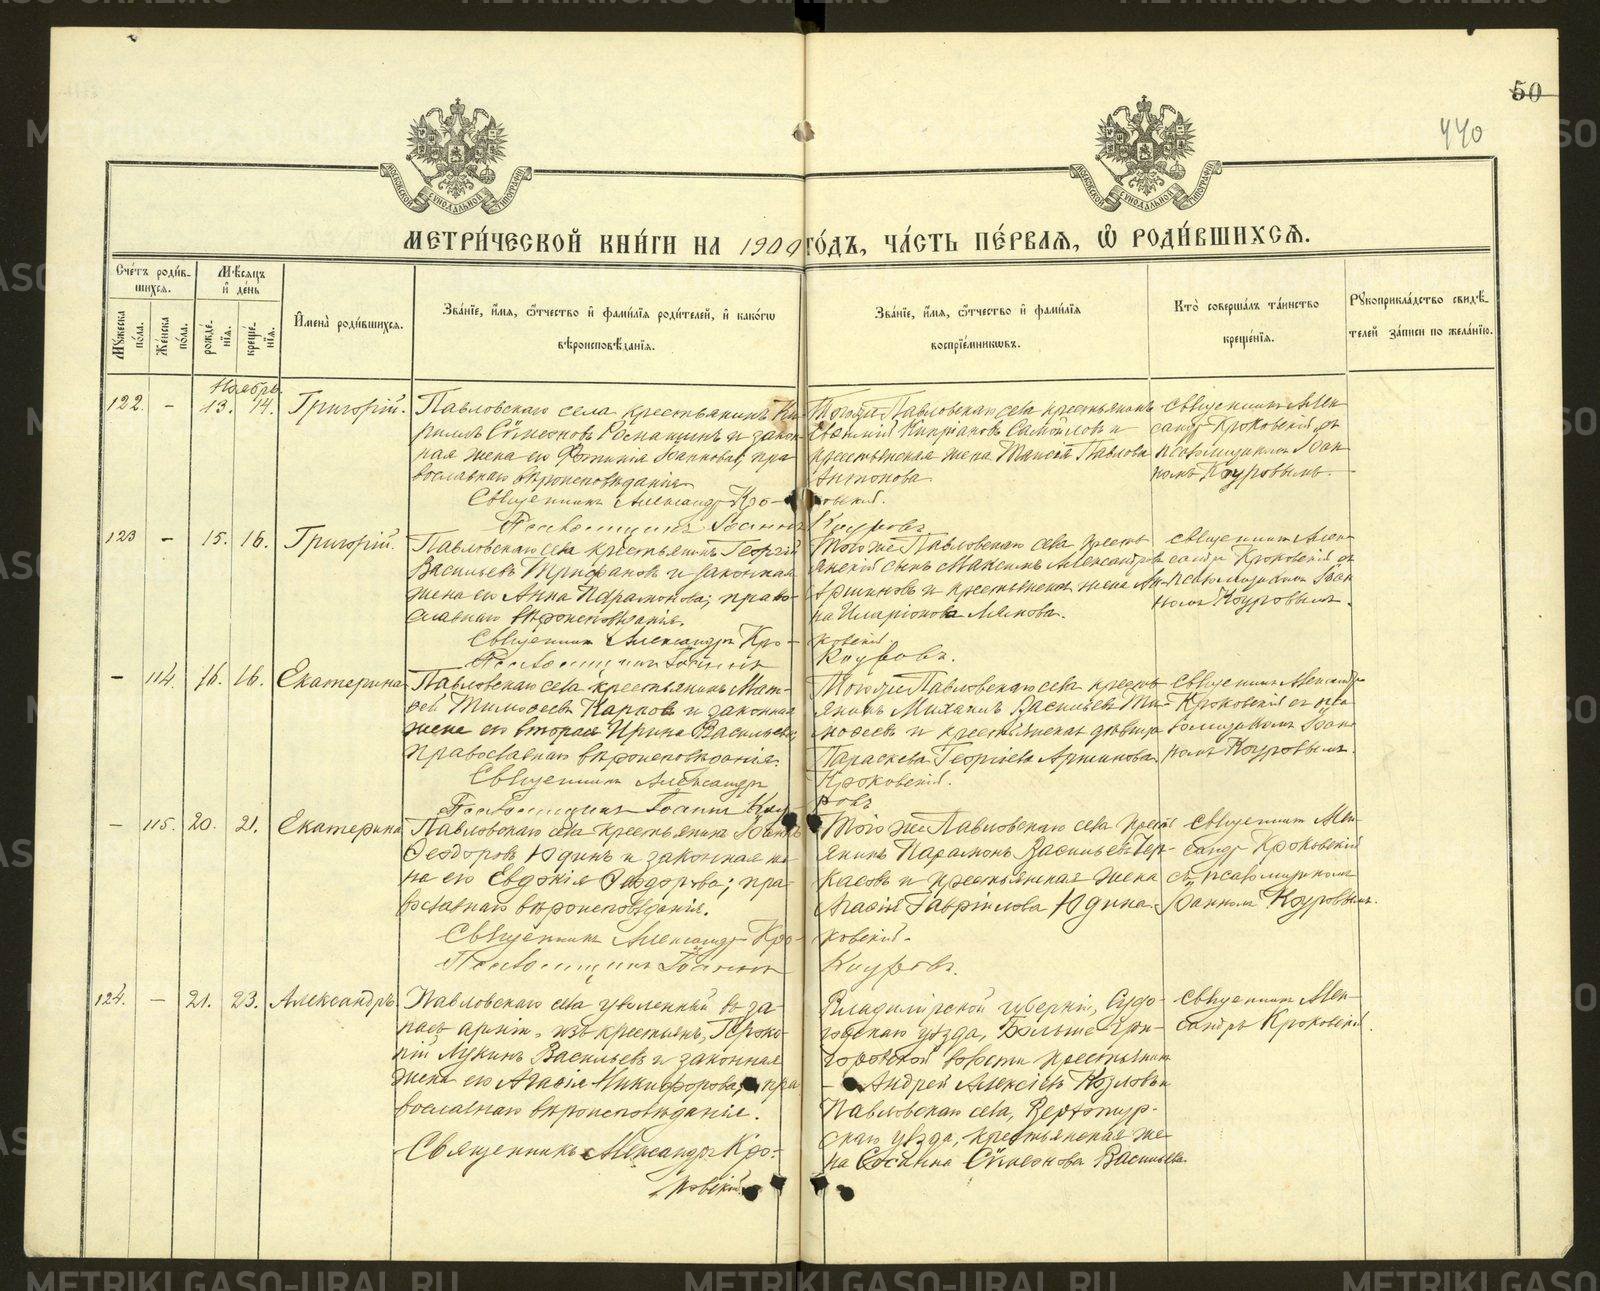 50
440
МЕТРИ́ЧЕСКОЙ КНИ́ГИ НА 1909 ГО́ДЪ, ЧА́СТЬ ПЕ́РВАѦ, Ѽ РОДИ́ВШИХСѦ.
Сче́тъ роди́вшихсѧ.
Мꙋ́жеска по́ла.
Же́нска по́ла.
Мѣ́сѧцъ и҆ де́нь
рожде́нїѧ.
креще́нїѧ.
И҆мена̀ роди́вшихсѧ.
Зва́нїе, и҆́мѧ, ѻ҆́тчество и҆ фами́лїѧ роди́телей, и҆ како́гѡ
вѣроисповѣ́данїѧ.
Зва́нїе, и҆́мѧ, ѻ҆́тчество и҆ фами́лїѧ
воспрїе́мникѡвъ.
Кто̀ соверша́лъ та́инство
креще́нїѧ.
Рꙋкоприкла́дство свидѣ́-
телей за́писи по жела́нїю.
Ноябрь
122. - 13. 14. Григорій.
Павловскаго села крестьянинъ Ки-
риллъ Сѵмеоновъ Росмахинъ и закон-
ная жена его Фотинія Іоаннова; пра-
вославнаго вѣроисповѣданія
Священникъ Александръ Кро-
ковскій.
Псаломщикъ Іоаннъ
Коуровъ
Тогоже Павловскаго села крестьянинъ
Евгеній Кипріановъ Самойловъ и
крестьянская жена Таисія Павлова
Антонова
священникъ Алек-
сандръ Кроковскій съ
псаломщикомъ Іоан-
номъ Коуровымъ.
123 - 15. 16. Григорій.
Павловскаго села крестьянинъ Георгій
Васильевъ Трифановъ и законная
жена его Анна Парамонова; право-
славнаго вѣроисповѣданія.
Священникъ Александръ Кро-
ковскій
Псаломщикъ Іоаннъ
Коуровъ.
Того же Павловскаго села кресть-
янскій сынъ Максимъ Александровъ
Аршиновъ и крестьянская жена Ан-
на Иларіонова Лямова.
священникъ Алек-
сандръ Кроковскій съ
псаломщикомъ Іоан-
номъ Коуровымъ.
- 114. 16. 16. Екатерина
Павловскаго села крестьянинъ Мат-
ѳей Тимоѳеевъ Карповъ и законная
жена его вторая Ирина Васильева;
православнаго вѣроисповѣданія.
Священникъ Александръ
Кроковскій.
Псаломщикъ Іоаннъ Коу-
ровъ
Тогоже Павловскаго села кресть-
янинъ Михаилъ Васильевъ Ти-
моѳеевъ и крестьянская дѣвица
Параскева Георгіева Аршинова
Священникъ Александръ
Кроковскій съ пса-
ломщикомъ Іоан-
номъ Коуровымъ.
- 115. 20. 21. Екатерина
Павловскаго села крестьянинъ Іоаннъ
Ѳеодоровъ Юдинъ и законная же-
на его Евдокія Ѳеодорова; пра-
вославнаго вѣроисповѣданія.
Священникъ Александръ Кро-
ковскій.
Псаломщикъ Іоаннъ
Коуровъ.
Того же Павловскаго села кресть-
янинъ Парамонъ Васильевъ Чер-
касовъ и крестьянская жена
Агаѳія Гавріилова Юдина.
священникъ Алек-
сандръ Кроковскій
съ псаломщикомъ
Іоанномъ Коуровымъ.
124. - 21. 23. Александръ
Павловскаго села уволенный въ за-
пасъ арміи, изъ крестьянъ, Проко-
пій Лукинъ Васильевъ и законная
жена его Агаѳія Никифорова; пра-
вославнаго вѣроисповѣданія.
Священникъ Александръ Кро-
ковскій
Владимірской губерніи, Судо-
годскаго уѣзда, Больше-Гри-
горовской волости крестьянинъ
Андрей Алексіевъ Козловъ и
Павловскаго села, Верхотур-
скаго уѣзда, крестьянская же-
на Сосанна Сѵмеонова Васильева
священникъ Алек-
сандръ Кроковскій.